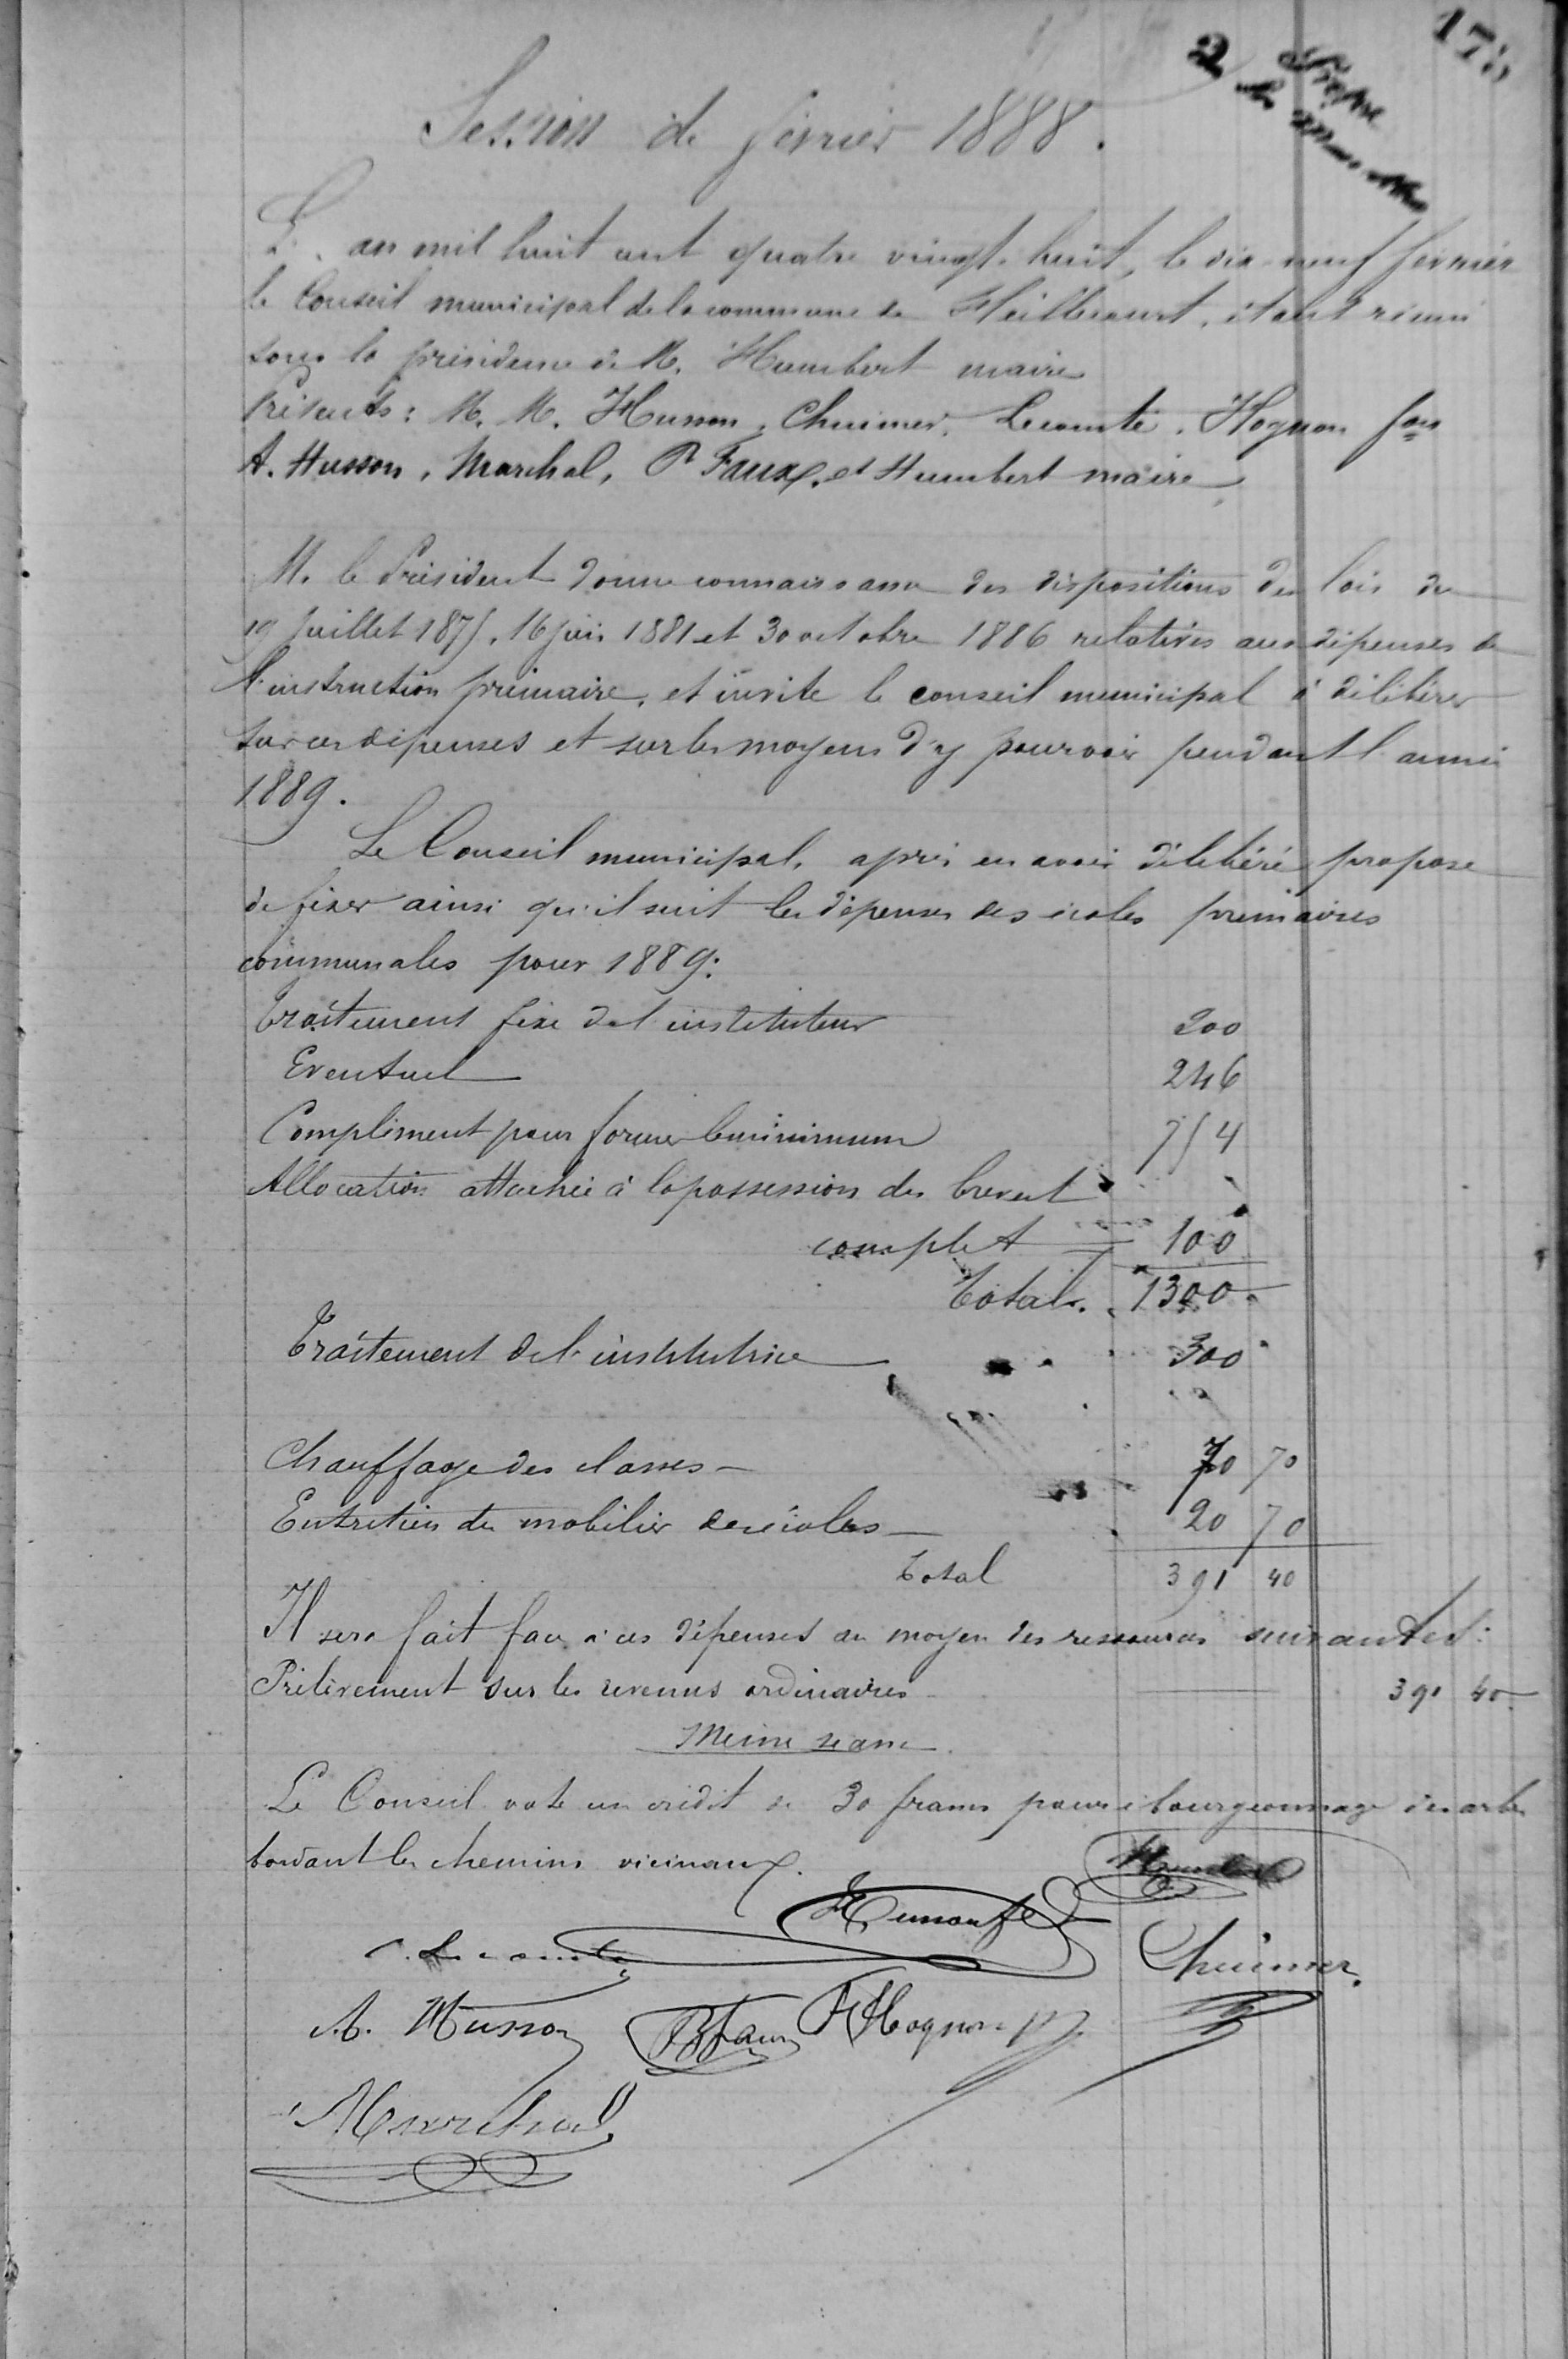 Session de février 1888.
L'an mil huit cent quatre vingt-huit, le dix-neuf février
le Conseil municipal de la commune de Heillecourt, étant réuni
sous la présidence de M. Humbert maire
Présents : M. M. Husson, Chuimer, Lecomte, Hognon fois
A. Husson, Marchal, P Faux, et Humbert maire
M. le Président donne connaissance des dispositions des lois du
19 Juillet 1875, 16 juin 1881 et 30 octobre 1886 relatives aux dépenses de
l'instruction primaire, et invite le conseil municipal à délibérer
sur ces dépenses et sur les moyens d'y pourvoir pendant l'année
1889.
Le Conseil municipal, après en avoir délibéré propose
de fixer ainsi qu'il suit les dépenses des écoles primaires
communales pour 1889:
Traitement fixe de l'instituteur 200
Eventuel 246
Complément pour former le minimum 754
Allocation attachée à la possession du brevet
complet 100
Total. 1300
Traitement de l'institutrice 300
Chauffage des classes 70 70
Entretien du mobilier des écoles 20 70
Total 391 40
Il sera fait face à ces dépenses au moyen des ressources suivantes :
Prélèvement sur les revenus ordinaires 391 40
Même séance
Le Conseil vote un crédit de 30 francs pour ébourgeonnage des arbres
bordant les chemins vicinaux.
Humbert
Husson
C. Lecomte Chuimer
A. Husson P Faux F Hognon
Marchal